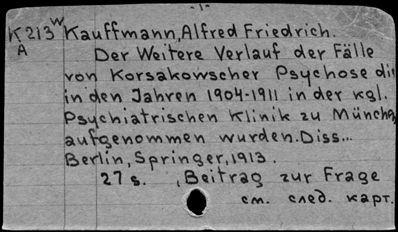 -1-
K213 W Kauffmann, Alfred Friedrich.
A Der Weitere Verlauf der Fälle
von Korsakowscher Psychose di
in den Jahren 1904-1911 in der kgl.
Psychiatrischen Klinik zu Münche
aufgenommen wurden. Diss...
Berlin, Springer, 1913.
27 s. , Beitrag zur Frage
см. след. карт.